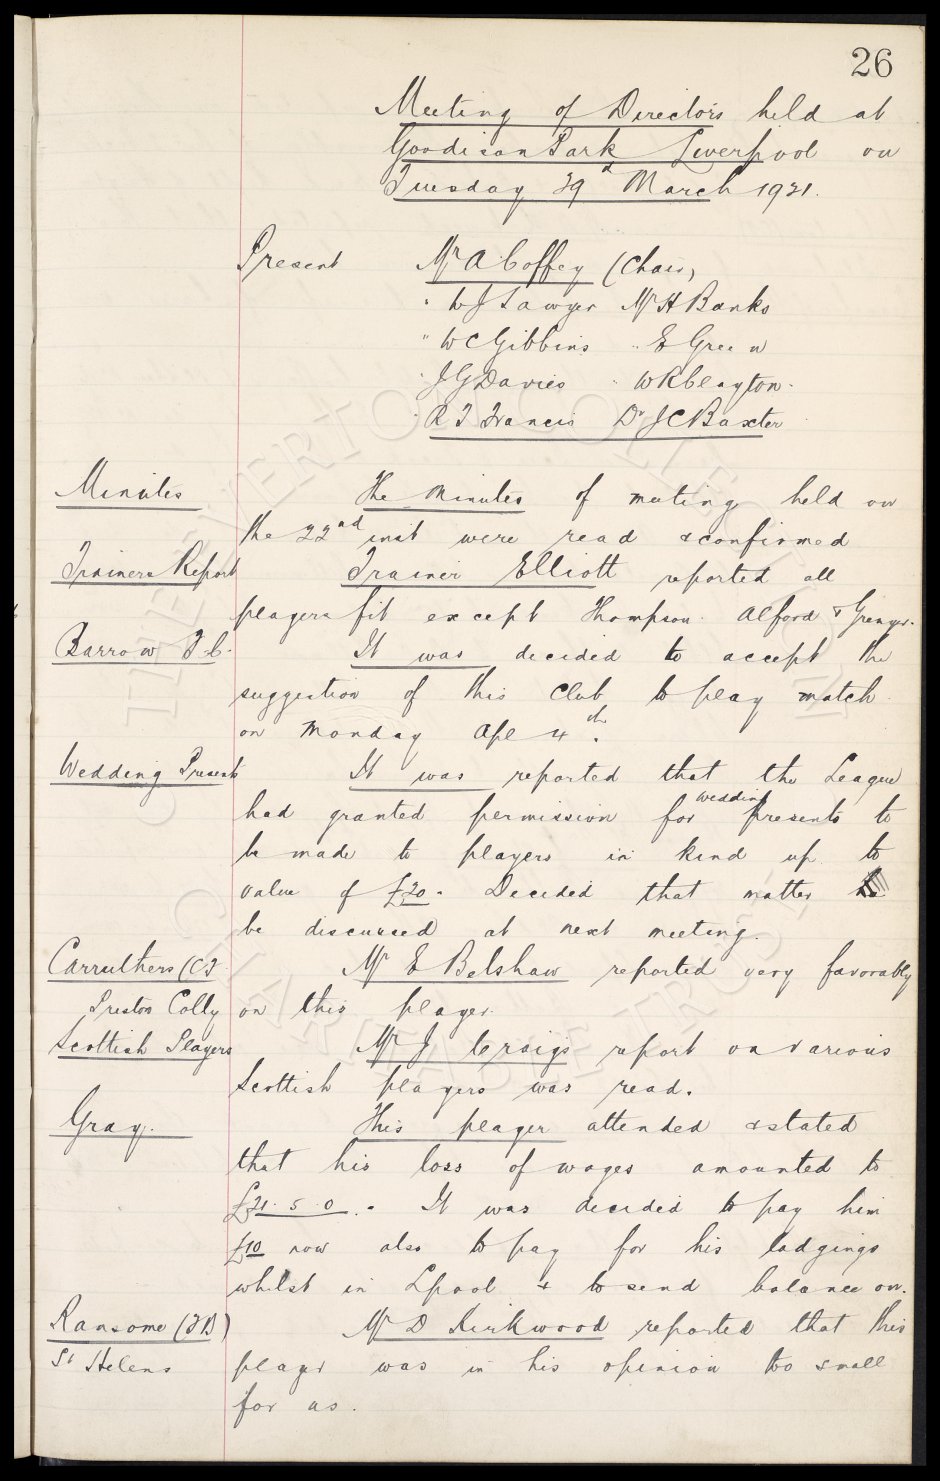 26
Meeting of Directors held at
Goodison Park Liverpool on
Tuesday 29th March 1921.
Present Mr A Coffey (Chair)
" W J Sawyer Mr H Banks
" W C Gibbins " E Green
" J G Davies " W R Clayton.
" R T Francis Dr J C Baxter
Minutes The Minutes of meeting held on
the 22nd inst were read & confirmed
Trainers Report Trainer Elliott reported all
players fit except Thompson. Alford & Grenyer.
Barrow F.C. It was decided to accept the
suggestion of this Club to play match
on Monday Apl 4th.
Wedding Presents It was reported that the League
had granted permission for wedding presents to
be made to players in kind up to
value of £20. Decided that matter
be discussed at next meeting.
Carruthers (CF Mr E Belshaw reported very favorably
Preston Colly on this player.
Scottish Players Mr J Craigs report on various
Scottish players was read.
Gray. This player attended & stated
that his loss of wages amounted to
£21. 5. 0. It was decided to pay him
£10 now also to pay for his lodgings
whilst in Lpool & to send balance on.
Ransome (FB) Mr D Kirkwood reported that this
St Helens player was in his opinion too small
for us.
THE EVERTON COLLECTION
CHARITABLE TRUST